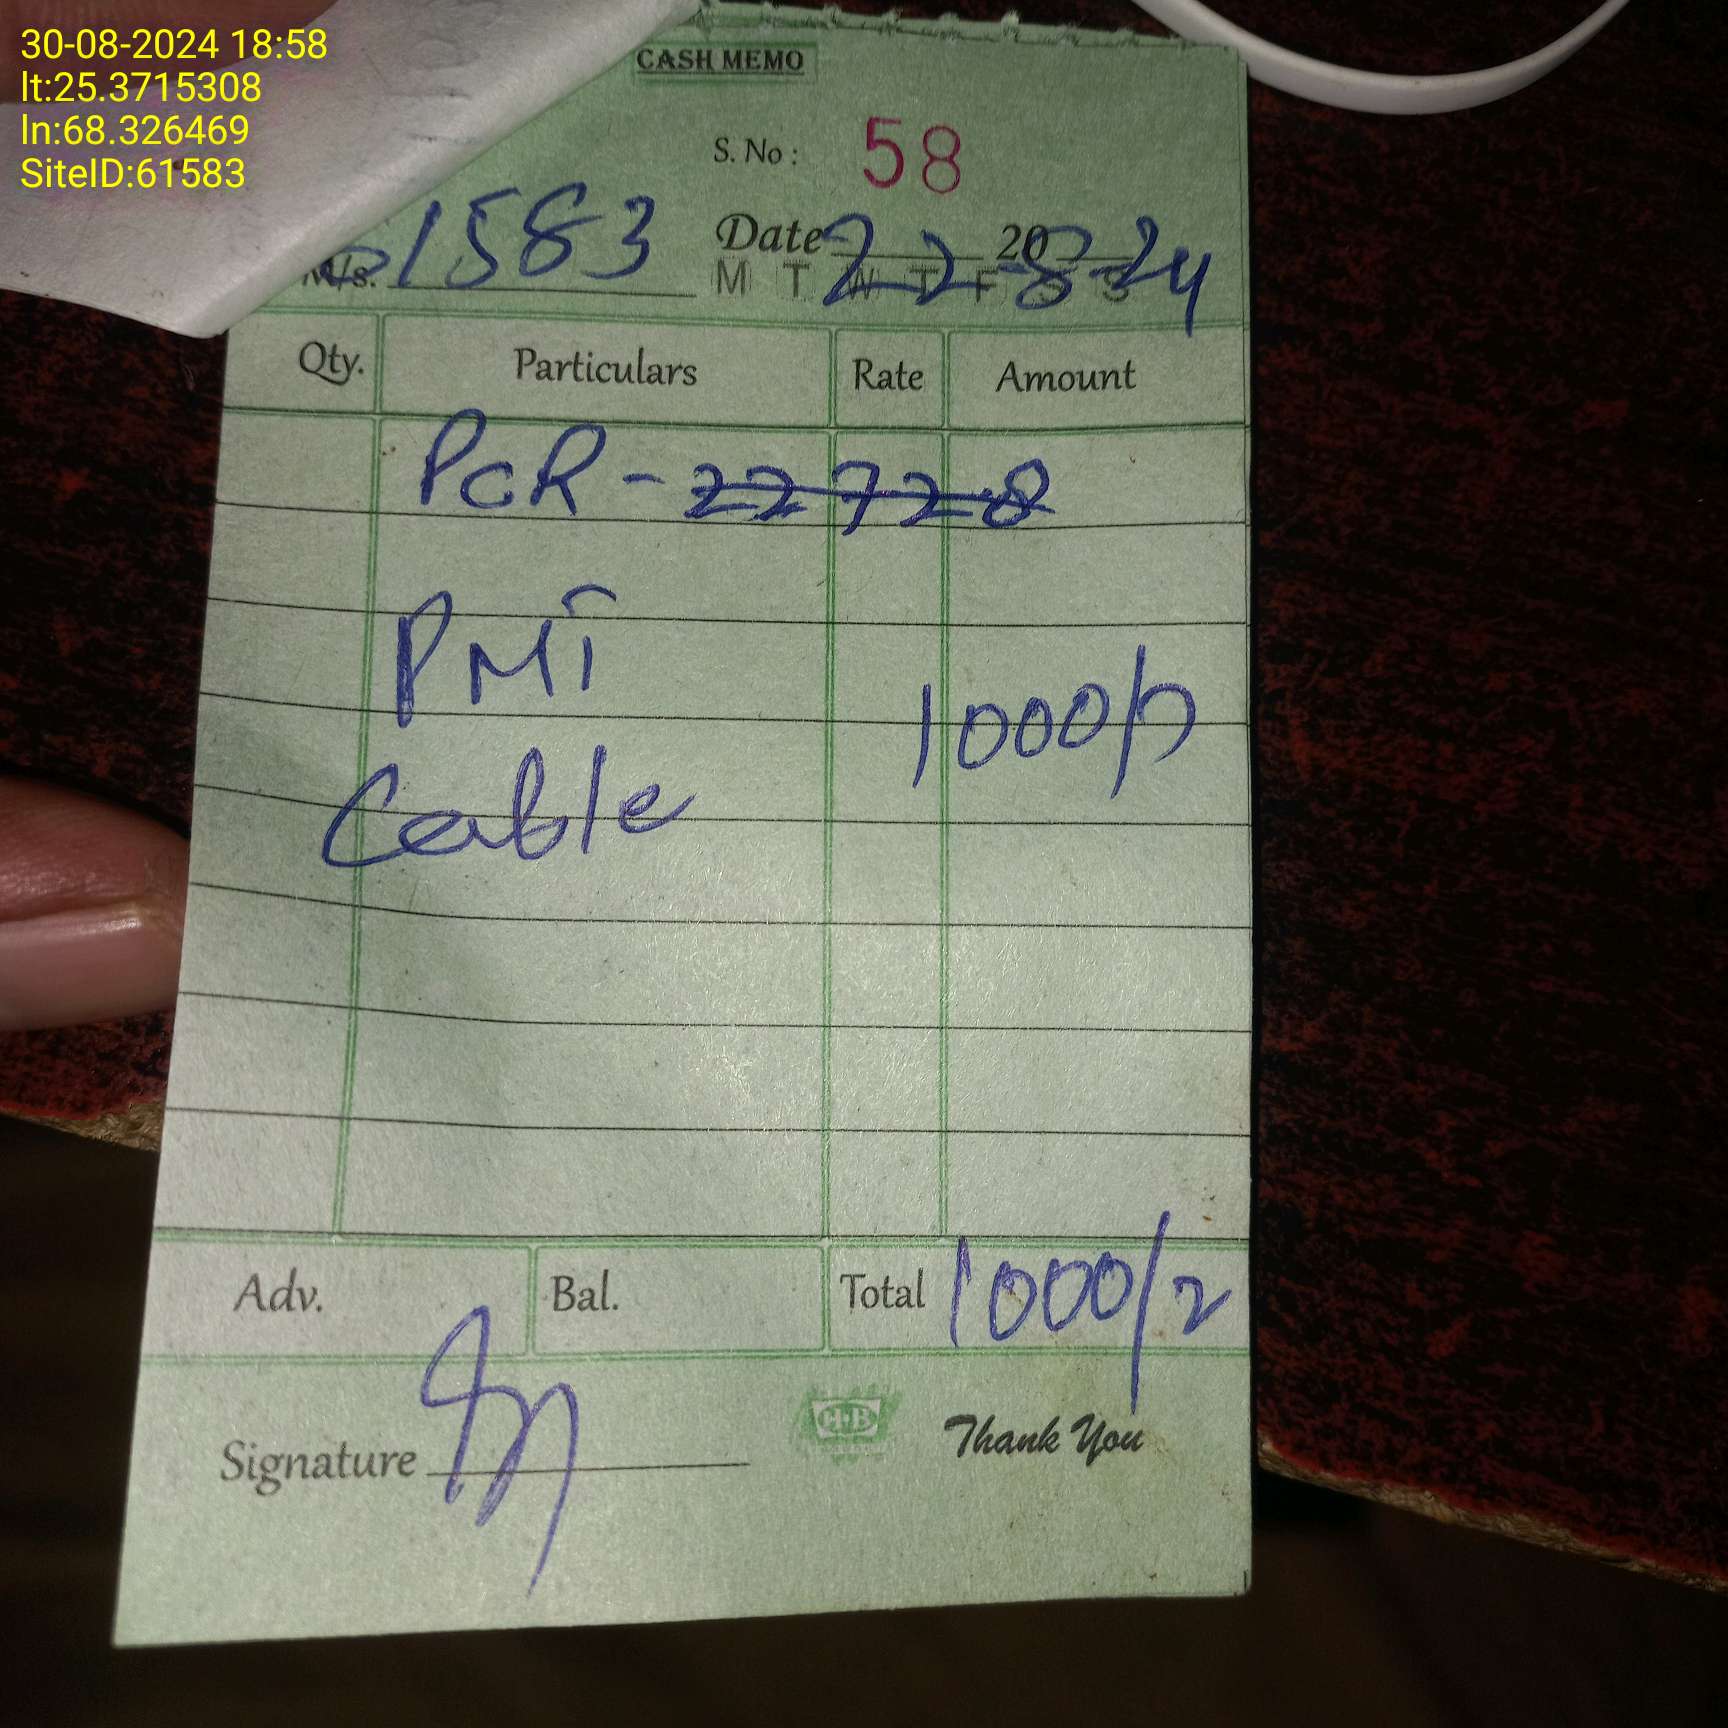 30-08-2024 18:58
lt:25.3715308
ln:68.326469
SiteID:61583
CASH MEMO
S. No : 58
M/s. 61583
Date 22-8-24 20
M T W T F S S
Qty. Particulars Rate Amount
PCR - 22728
PMT
1000/
Cable
Adv. Bal. Total 1000/
Signature
H-B
Thank You